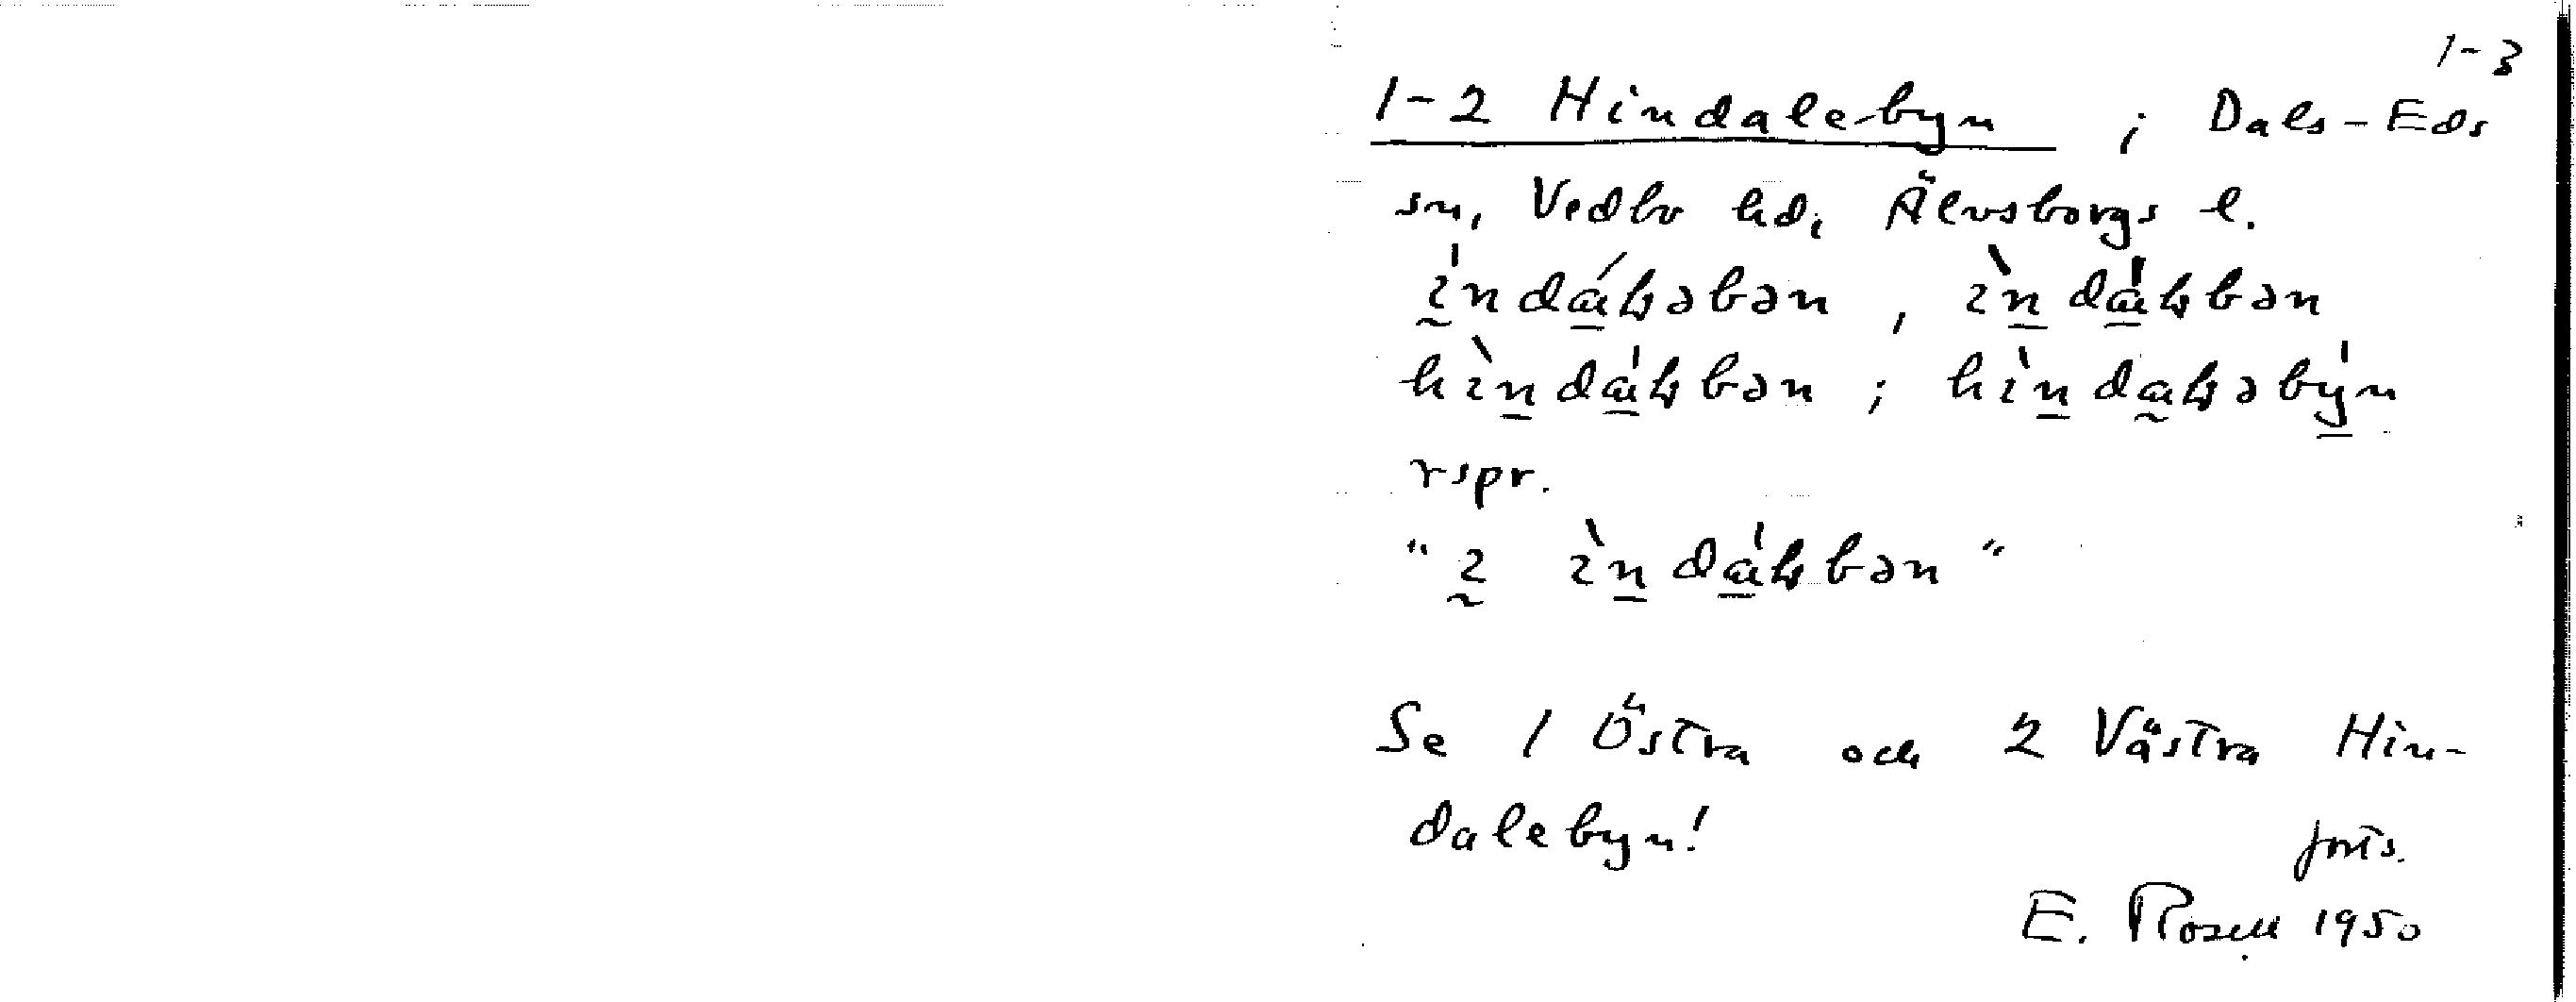 1-3
1-2 Hindalebyn i Dals-Eds
sn, Vedbo hd, Älvsborgs l.
ı̍ndáɽəbən, ı̀nda̍ɽbən
hı̀nda̍ɽbən; hı̀ndaɽəby̍n
rspr.
"ı ı̀nda̍ɽbən"
Se 1 Östra och 2 Västra Hin-
dalebyn!
forts.
E. Rosell 1950